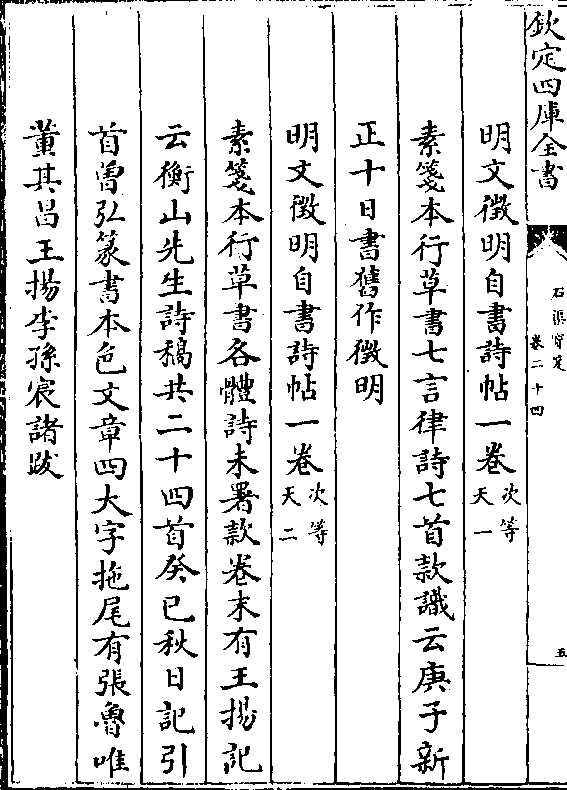 欽定四庫全書
石渠寶笈
卷二十四
五
明文徵明自書詩帖一卷
次等
天一
素箋本行草書七言律詩七首款識云庚子新
正十日書舊作徵明
明文徵明自書詩帖一卷
次等
天二
素箋本行草書各體詩未署款卷末有王揚記
云衡山先生詩稿共二十四首癸巳秋日記引
首曽弘篆書本色文章四大字拖尾有張魯唯
董其昌王揚李孫宸諸跋